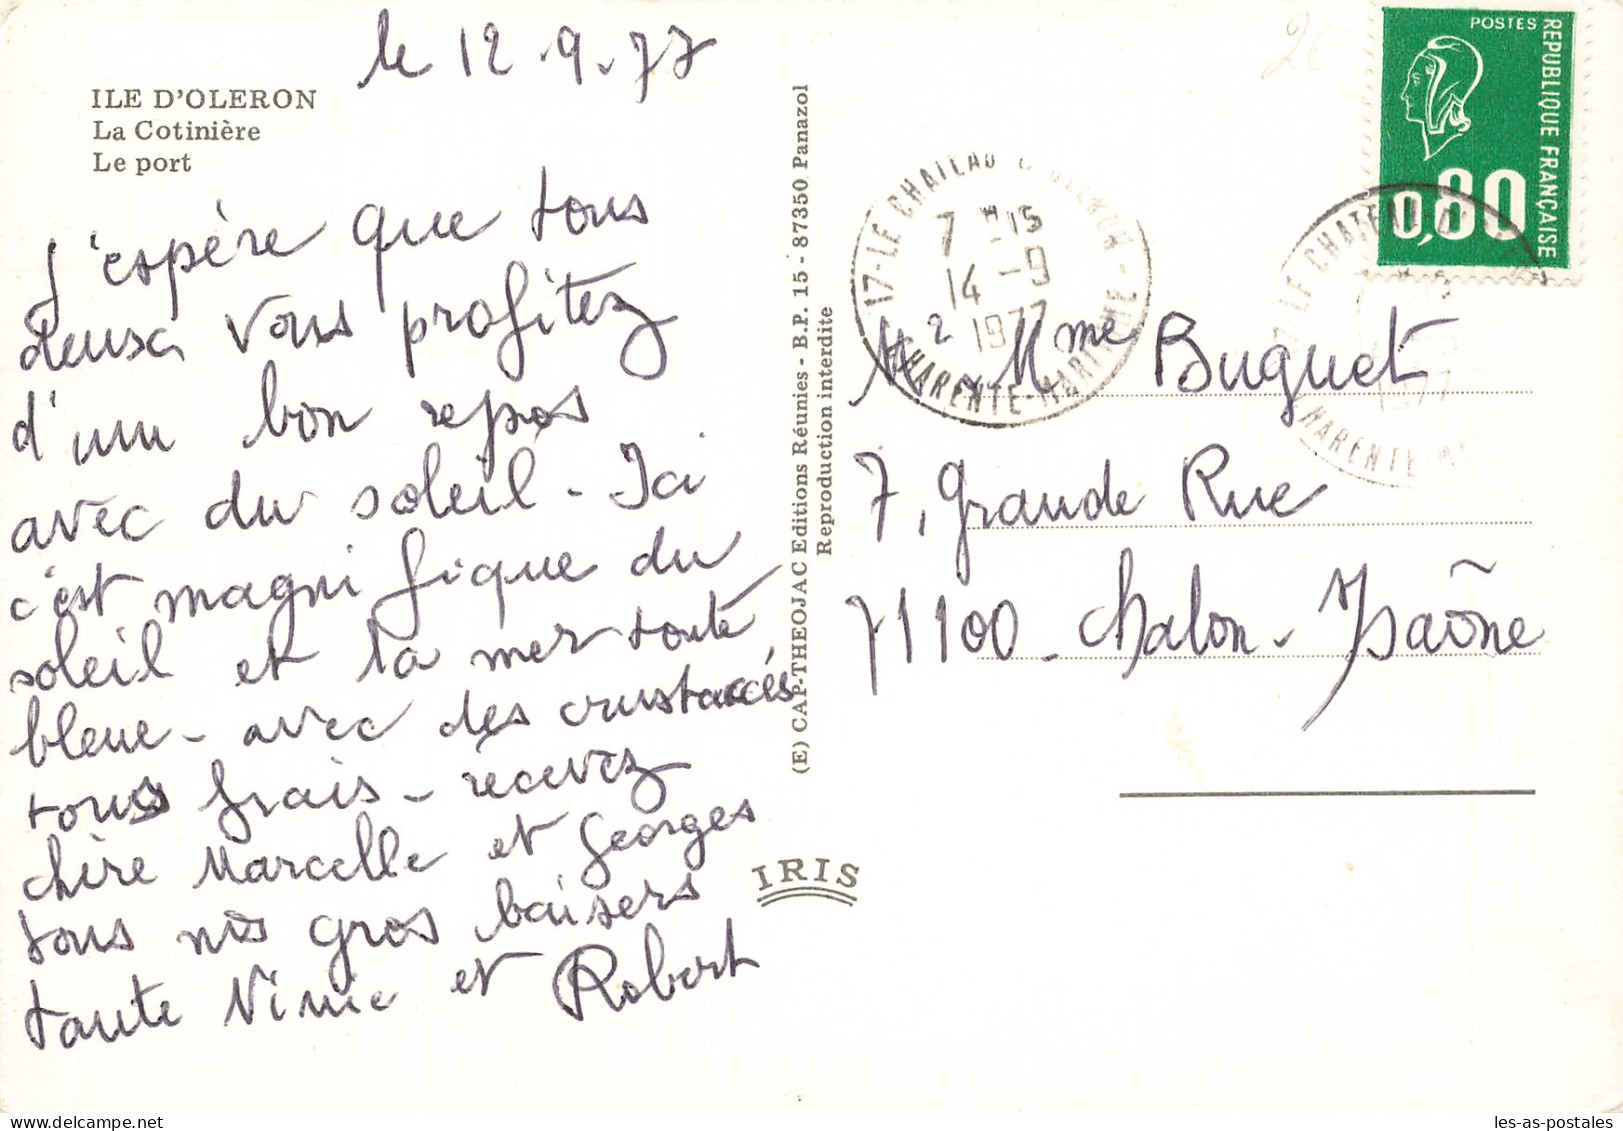 le 12.9.77
ILE D'OLERON
La Cotinière
Le port
J'espère que tous
deux vous profitez
d'un bon repos
avec du soleil - Ici
c'est magnifique du
soleil et la mer toute
bleue - avec des crustacés
tous frais - recevez
chère Marcelle et Georges
tous nos gros baisers
tante Ninie et Robert
(E) CAP-THEOJAC Editions Réunies - B.P. 15 - 87350 Panazol
Reproduction interdite
IRIS
POSTES
REPUBLIQUE FRANÇAISE
0,80
17-LE CHATEAU D'OLERON-
7 H 15
14 -9
1977
CHARENTE-MARITIME
LE CHATEAU D'
1977
HARENTE-MA
M² Mme Buguet
7, Grande Rue
71100 - Chalon - s/Saône
les-as-postales